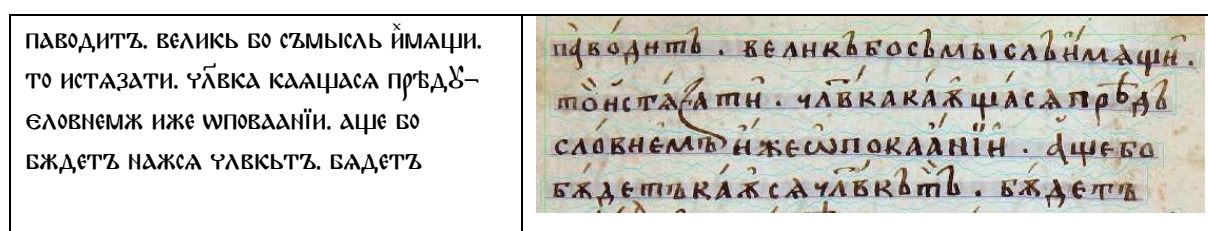 паводитъ. великь бо съмысль и҆̌мѧщи.
то истѧзати. чл҃вка каѧщасѧ прѣдꙋ–
єловнемѫ иже ѡповаанїи. аще бо
бѫдетъ наѫсѧ члвкьтъ. бѧдетъ
па́во́дитъ . великъбосъмыслъи́мѧщи̑ .
то́и́стѧꙁати̑ . чл҃вкакаѫ́щасѧпрѣⷣъ
сло́внемъи́жеѡ҆покаа́нїи . а́щебо
бѫ́детъкаѫ́сѧчл҃вкътъ . бѫ́детъ